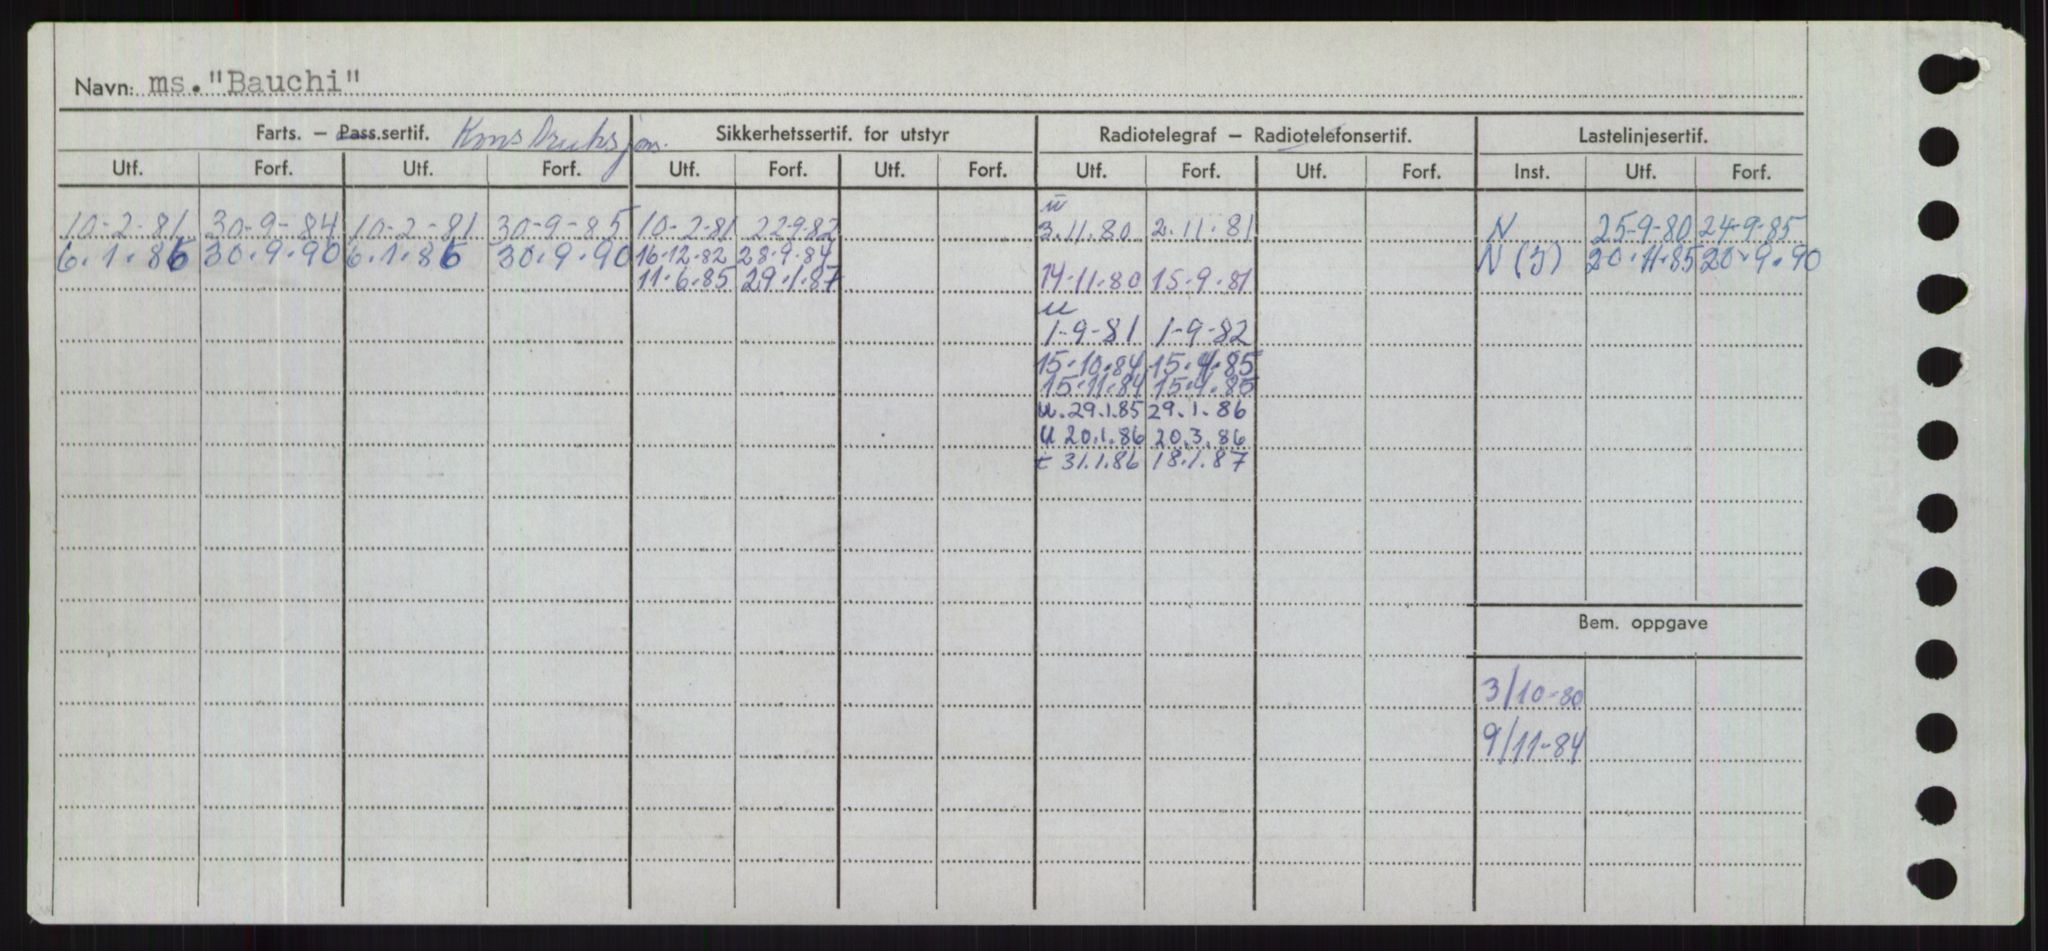 Navn: ms. "Bauchi"
Farts. – Pass.sertif. Konstruksjon. Sikkerhetssertif. for utstyr Radiotelegraf – Radiotelefonsertif. Lastelinjesertif.
Utf. Forf. Utf. Forf. Utf. Forf. Utf. Forf. Utf. Forf. Utf. Forf. Inst. Utf. Forf.
u
10-2-81 30-9-84 10-2-81 30-9-85 10-2-81 22-9-82 3.11.80 2.11.81 N 25-9-80 24-9-85
6.1.86 30.9.90 6.1.86 30.9.90 16-12-82 28-9-84 N (J) 20.11.85 20.9.90
11.6.85 29.1.87 14-11.80 15-9.81
u
1-9-81 1-9-82
15.10.84 15.4.85
15.11.84 15.4.85
u. 29.1.85 29.1.86
u 20.1.86 20.3.86
t 31.1.86 18.1.87
Bem. oppgave
3/10-80
9/11-84